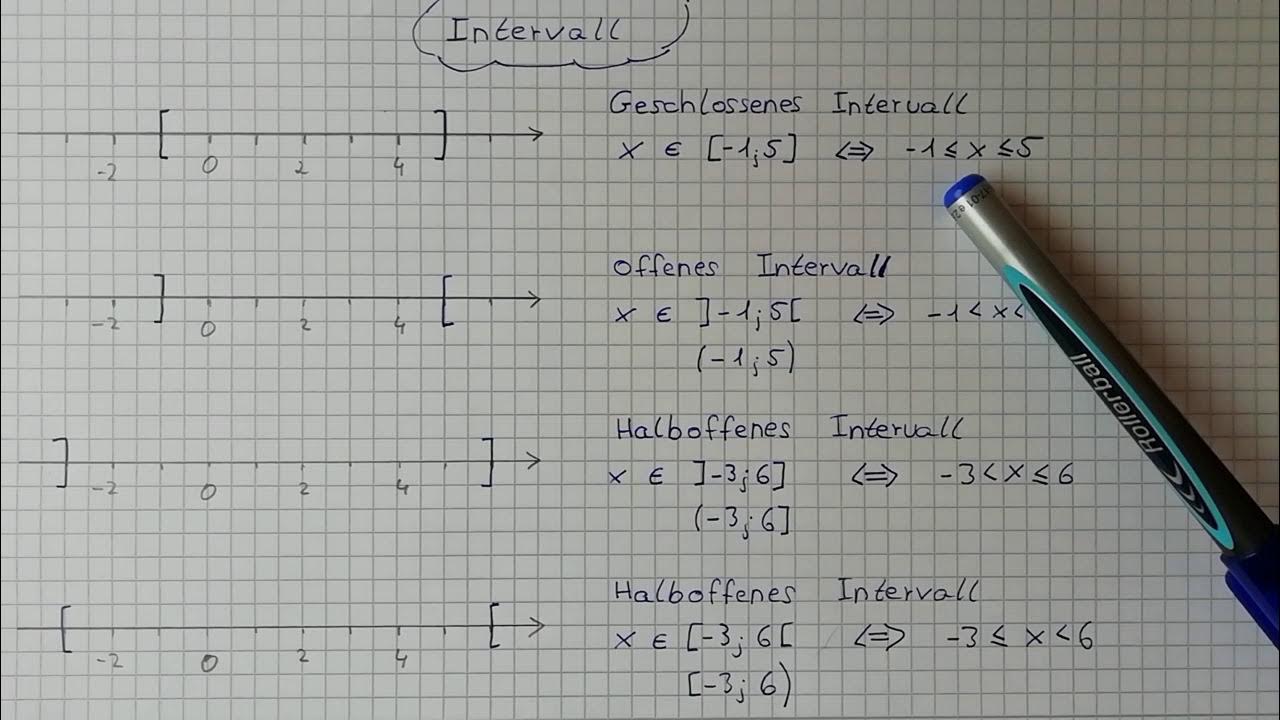 Intervall
Geschlossenes Intervall
x ∈ [-1;5] ⇔ -1 ≤ x ≤ 5
-2 0 2 4
Offenes Intervall
x ∈ ]-1;5[ ⇔ -1 < x <
-2 0 2 4
(-1;5)
Halboffenes Intervall
x ∈ ]-3;6] ⇔ -3 < x ≤ 6
-2 0 2 4
(-3;6]
Halboffenes Intervall
x ∈ [-3;6[ ⇔ -3 ≤ x < 6
-2 0 2 4
[-3;6)
Rollerball